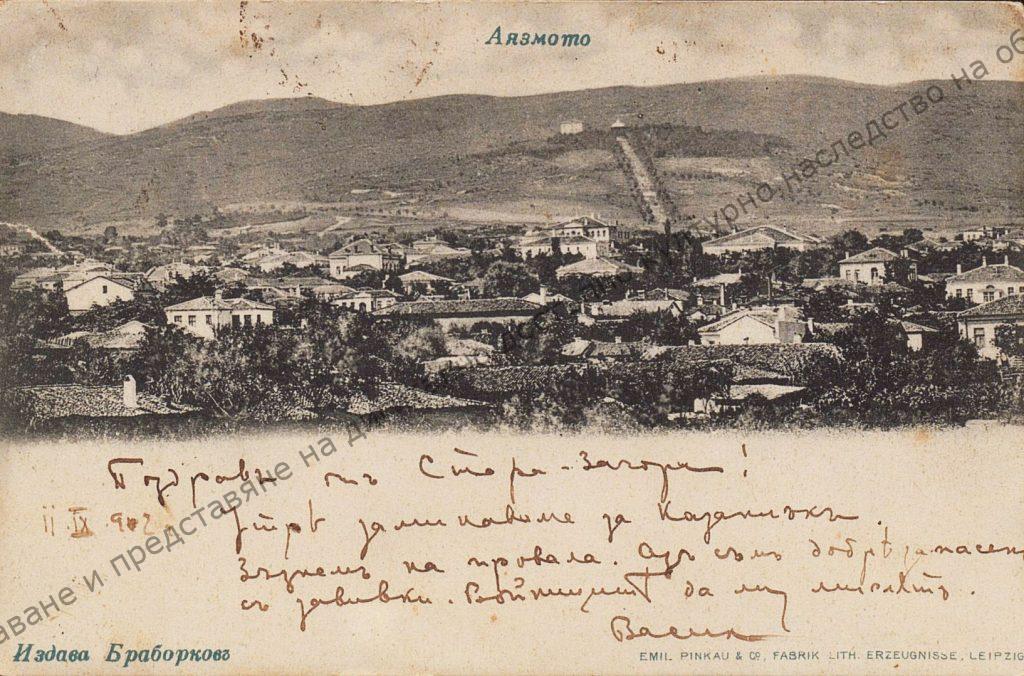 Аязмото
Поздравъ отъ Стара-Загора!
11 IX 902
Утрѣ заминаваме за Казанлъкъ.
на провала. Азъ съмъ добрѣ запасенъ
съ завивки. Войницитѣ да му мислятъ.
Васил
Издава Браборковъ
EMIL PINKAU & Cº, FABRIK LITH. ERZEUGNISSE, LEIPZIG
аване и представяне на ди
турно наследство на об